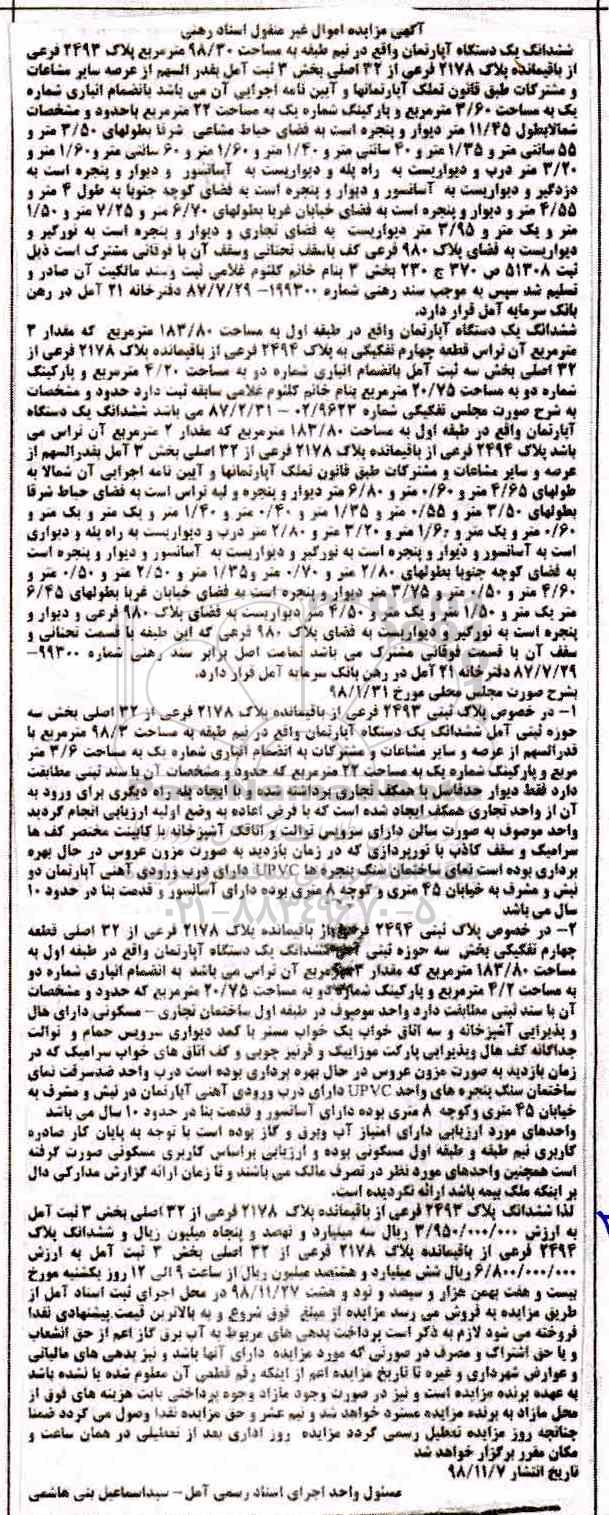 آگهی مزایده اموال غیر منقول اسناد رهنی
ششدانگ یک دستگاه آپارتمان واقع در نیم طبقه به مساحت ۹۸/۳۰ مترمربع پلاک ۲۴۹۳ فرعی
از باقیمانده پلاک ۲۱۷۸ فرعی از ۳۲ اصلی بخش ۳ ثبت آمل بقدر السهم از عرصه سایر مشاعات
و مشترکات طبق قانون تملک آپارتمانها و آیین نامه اجرایی آن می باشد بانضمام انباری شماره
یک به مساحت ۳/۶۰ مترمربع و پارکینگ شماره یک به مساحت ۲۲ مترمربع باحدود و مشخصات
شمالابطول ۱۱/۴۵ متر دیوار و پنجره است به فضای حیاط مشاعی شرقا بطولهای ۳/۵۰ متر و
۵۵ سانتی متر و ۱/۳۵ متر و ۴۰ سانتی متر و ۱/۴۰ متر و ۱/۶۰ متر و ۶۰ سانتی متر و۱/۶۰ متر و
۳/۲۰ متر درب و دیواریست به راه پله و دیواریست به آسانسور و دیوار و پنجره است به
دزدگیر و دیواریست به آسانسور و دیوار و پنجره است به فضای کوچه جنوبا به طول ۴ متر و
۴/۵۵ متر و دیوار و پنجره است به فضای خیابان غربا بطولهای ۶/۷۰ متر و ۷/۲۵ متر و ۱/۵۰
متر و یک متر و ۳/۹۵ متر دیواریست به فضای تجاری و دیوار و پنجره است به نورگیر و
دیواریست به فضای پلاک ۹۸۰ فرعی کف باسقف تحتانی وسقف آن با فوقانی مشترک است ذیل
ثبت ۵۱۳۰۸ ص ۳۷۰ ج ۲۳۰ بخش ۳ بنام خانم کلثوم غلامی ثبت وسند مالکیت آن صادر و
تسلیم شد سپس به موجب سند رهنی شماره ۱۹۹۳۰۰- ۸۷/۷/۲۹ دفترخانه ۲۱ آمل در رهن
بانک سرمایه آمل قرار دارد.
ششدانگ یک دستگاه آپارتمان واقع در طبقه اول به مساحت ۱۸۳/۸۰ مترمربع که مقدار ۳
مترمربع آن تراس قطعه چهارم تفکیکی به پلاک ۲۴۹۴ فرعی از باقیمانده پلاک ۲۱۷۸ فرعی از
۳۲ اصلی بخش سه ثبت آمل بانضمام انباری شماره دو به مساحت ۴/۲۰ مترمربع و پارکینگ
شماره دو به مساحت ۲۰/۷۵ مترمربع بنام خانم کلثوم غلامی سابقه ثبت دارد حدود و مشخصات
به شرح صورت مجلس تفکیکی شماره ۰۲/۹۶۲۳ – ۸۷/۲/۳۱ می باشد ششدانگ یک دستگاه
آپارتمان واقع در طبقه اول به مساحت ۱۸۳/۸۰ مترمربع که مقدار ۲ مترمربع آن تراس می
باشد پلاک ۲۴۹۴ فرعی از باقیمانده پلاک ۲۱۷۸ فرعی از ۳۲ اصلی بخش ۳ آمل بقدرالسهم از
عرصه و سایر مشاعات و مشترکات طبق قانون تملک آپارتمانها و آیین نامه اجرایی آن شمالا به
طولهای ۴/۶۵ متر و ۰/۶۰ متر و ۶/۸۰ متر دیوار و پنجره و لبه تراس است به فضای حیاط شرقا
بطولهای ۳/۵۰ متر و ۰/۵۵ متر و ۱/۳۵ متر و ۰/۴۰ متر و ۱/۴۰ متر و یک متر و یک متر و
۰/۶۰ متر و یک متر و ۱/۶۰ متر و ۳/۲۰ متر و ۲/۸۰ متر درب و دیواریست به راه پله و دیواری
است به آسانسور و دیوار و پنجره است به نورگیر و دیواریست به آسانسور و دیوار و پنجره است
به فضای کوچه جنوبا بطولهای ۲/۸۰ متر و ۰/۷۰ متر و۱/۳۵ متر و ۲/۵۰ متر و ۰/۵۰ متر و
۴/۶۰ متر و ۰/۵۰ متر و ۳/۷۵ متر دیوار و پنجره است به فضای خیابان غربا بطولهای ۶/۴۵
متر یک متر و ۱/۵۰ متر و یک متر و ۴/۵۰ متر دیواریست به فضای پلاک ۹۸۰ فرعی و دیوار و
پنجره است به نورگیر و دیواریست به فضای پلاک ۹۸۰ فرعی که این طبقه با قسمت تحتانی و
سقف آن با قسمت فوقانی مشترک می باشد تمامت اصل برابر سند رهنی شماره ۹۹۳۰۰-
۸۷/۷/۲۹ دفترخانه ۲۱ آمل در رهن بانک سرمایه آمل قرار دارد.
بشرح صورت مجلس محلی مورخ ۹۸/۱/۳۱
۱- در خصوص پلاک ثبتی ۲۴۹۳ فرعی از باقیمانده پلاک ۲۱۷۸ فرعی از ۳۲ اصلی بخش سه
حوزه ثبتی آمل ششدانگ یک دستگاه آپارتمان واقع در نیم طبقه به مساحت ۹۸/۳ مترمربع با
قدرالسهم از عرصه و سایر مشاعات و مشترکات به انضمام انباری شماره یک به مساحت ۳/۶ متر
مربع و پارکینگ شماره یک به مساحت ۲۲ مترمربع که حدود و مشخصات آن با سند ثبتی مطابقت
دارد فقط دیوار حدفاصل با همکف تجاری برداشته شده و با ایجاد پله راه دیگری برای ورود به
آن از واحد تجاری همکف ایجاد شده است که با فرض اعاده به وضع اولیه ارزیابی انجام گردید
واحد موصوف به صورت سالن دارای سرویس توالت و اتاقک آشپزخانه با کابینت مختصر کف ها
سرامیک و سقف کاذب با نورپردازی که در زمان بازدید به صورت مزون عروس در حال بهره
برداری بوده است نمای ساختمان سنگ پنجره ها UPVC دارای درب ورودی آهنی آپارتمان دو
نبش و مشرف به خیابان ۴۵ متری و کوچه ۸ متری بوده دارای آسانسور و قدمت بنا در حدود ۱۰
سال می باشد
۲- در خصوص پلاک ثبتی ۲۴۹۴ فرعی از باقیمانده پلاک ۲۱۷۸ فرعی از ۳۲ اصلی قطعه
چهارم تفکیکی بخش سه حوزه ثبتی آمل ششدانگ یک دستگاه آپارتمان واقع در طبقه اول به
مساحت ۱۸۳/۸۰ مترمربع که مقدار ۳ مترمربع آن تراس می باشد به انضمام انباری شماره دو
به مساحت ۴/۲ مترمربع و پارکینگ شماره دو به مساحت ۲۰/۷۵ مترمربع که حدود و مشخصات
آن با سند ثبتی مطابقت دارد واحد موصوف در طبقه اول ساختمان تجاری – مسکونی دارای هال
و پذیرایی آشپزخانه و سه اتاق خواب یک خواب مستر با کمد دیواری سرویس حمام و توالت
جداگانه کف هال وپذیرایی پارکت موزاییک و قرنیز چوبی و کف اتاق های خواب سرامیک که در
زمان بازدید به صورت مزون عروس در حال بهره برداری بوده است درب واحد ضدسرقت نمای
ساختمان سنگ پنجره های واحد UPVC دارای درب ورودی آهنی آپارتمان در نبش و مشرف به
خیابان ۴۵ متری وکوچه ۸ متری بوده دارای آسانسور و قدمت بنا در حدود ۱۰ سال می باشد
واحدهای مورد ارزیابی دارای امتیاز آب وبرق و گاز بوده است با توجه به پایان کار صادره
کاربری نیم طبقه و طبقه اول مسکونی بوده و ارزیابی براساس کاربری مسکونی صورت گرفته
است همچنین واحدهای مورد نظر در تصرف مالک می باشند و تا زمان ارائه گزارش مدارکی دال
بر اینکه ملک بیمه باشد ارائه نگردیده است.
لذا ششدانگ پلاک ۲۴۹۳ فرعی از باقیمانده پلاک ۲۱۷۸ فرعی از ۳۲ اصلی بخش ۳ ثبت آمل
به ارزش ۳/۹۵۰/۰۰۰/۰۰۰ ریال سه میلیارد و نهصد و پنجاه میلیون ریال و ششدانگ پلاک
۲۴۹۴ فرعی از باقیمانده پلاک ۲۱۷۸ فرعی از ۳۲ اصلی بخش ۳ ثبت آمل به ارزش
۶/۸۰۰/۰۰۰/۰۰۰ ریال شش میلیارد و هشتصد میلیون ریال از ساعت ۹ الی ۱۲ روز یکشنبه مورخ
بیست و هفت بهمن هزار و سیصد و نود و هشت ۹۸/۱۱/۲۷ در محل اجرای ثبت اسناد آمل از
طریق مزایده به فروش می رسد مزایده از مبلغ فوق شروع و به بالاترین قیمت پیشنهادی نقدا
فروخته می شود لازم به ذکر است پرداخت بدهی های مربوط به آب برق گاز اعم از حق انشعاب
و یا حق اشتراک و مصرف در صورتی که مورد مزایده دارای آنها باشد و نیز بدهی های مالیاتی
و عوارض شهرداری و غیره تا تاریخ مزایده اعم از اینکه رقم قطعی آن معلوم شده یا نشده باشد
به عهده برنده مزایده است و نیز در صورت وجود مازاد وجوه پرداختی بابت هزینه های فوق از
محل مازاد به برنده مزایده مسترد خواهد شد و نیم عشر و حق مزایده نقدا وصول می گردد ضمنا
چنانچه روز مزایده تعطیل رسمی گردد مزایده روز اداری بعد از تعطیلی در همان ساعت و
مکان مقرر برگزار خواهد شد
تاریخ انتشار ۹۸/۱۱/۷
مسئول واحد اجرای اسناد رسمی آمل – سیداسماعیل بنی هاشمی
۰۲۱-۸۸۳۴۹۶۷۰-۵